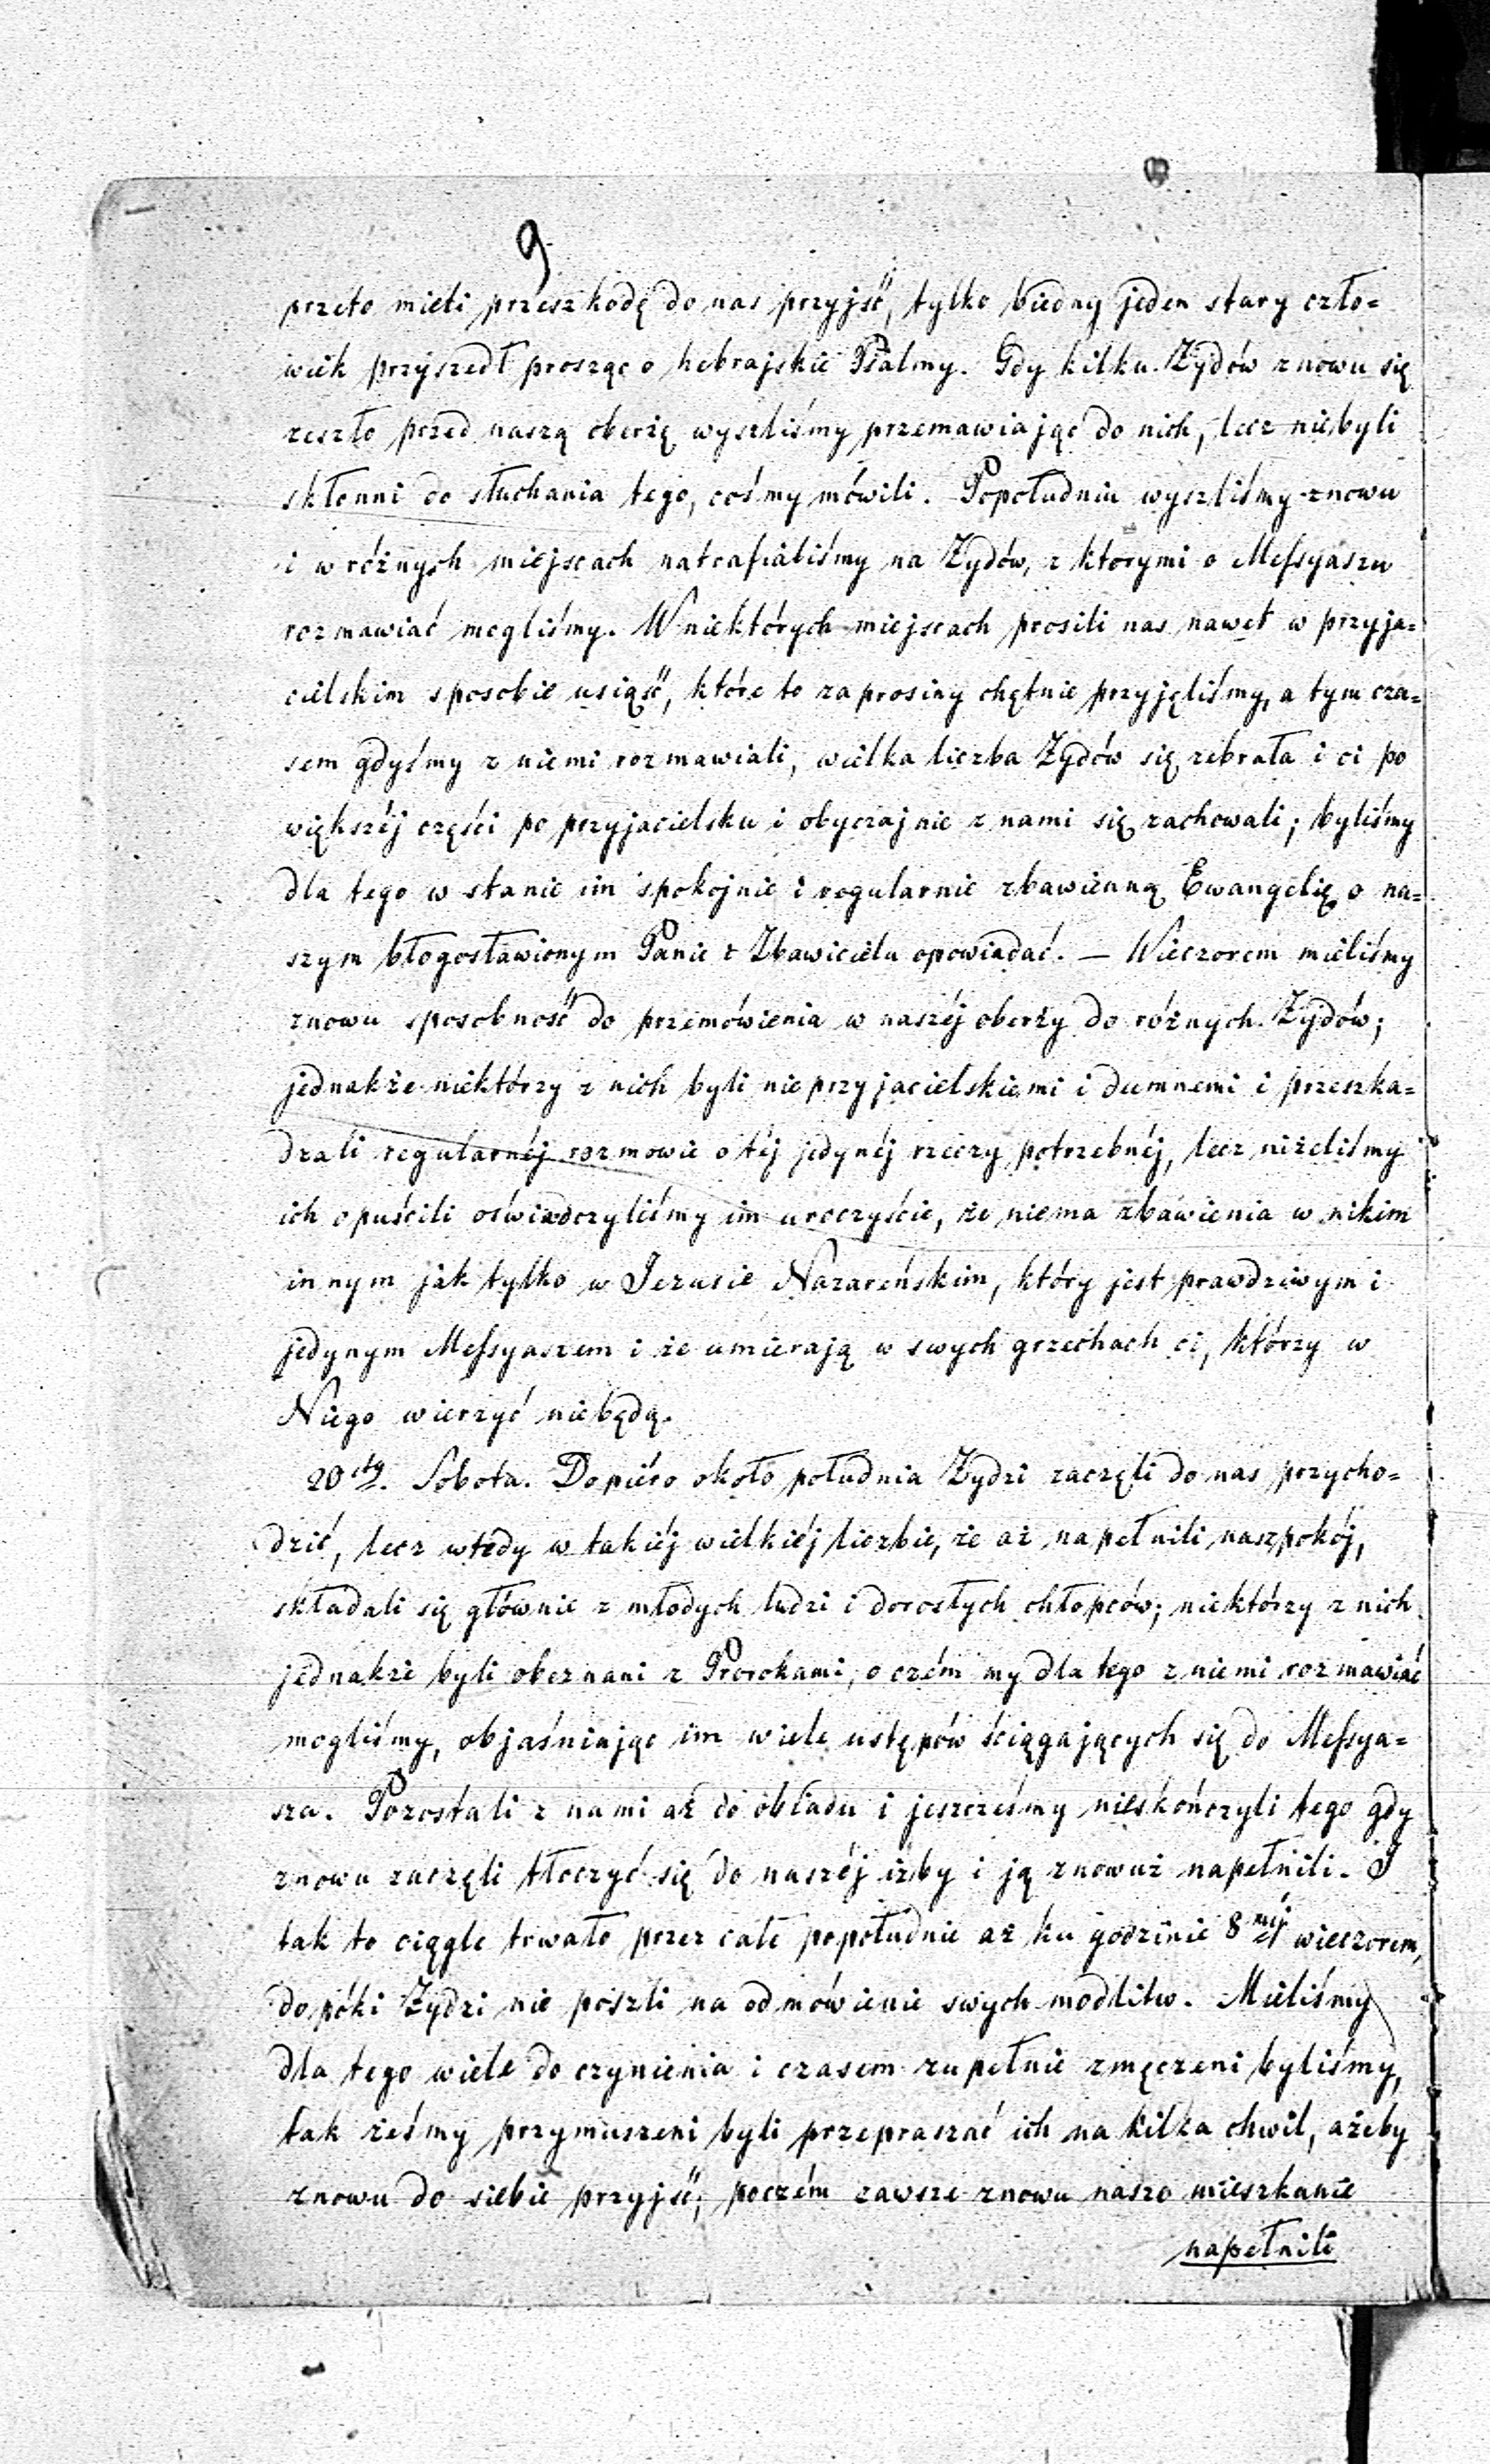 9
przeto mieli przeszkodę do nas przyjść, tylko biedny jeden stary czło=
wiek przyszedł prosząc o hebrajskie Psalmy. Gdy kilku Żydów znowu się
zeszło przed naszą oberżę wyszliśmy przemawiając do nich, lecz niebyli
skłonni do słuchania tego, cośmy mówili. Popołudniu wyszliśmy znowu
i w różnych miejscach natrafialiśmy na Żydów, z ktorymi o Messyaszu
rozmawiać mogliśmy. W niektórych miejscach prosili nas nawet w przyja=
cielskim sposobie usiąść, które to zaprosiny chętnie przyjęliśmy, a tym cza=
sem gdyśmy z niemi rozmawiali, wielka liczba Żydów się zebrała i ci po
większéj części po przyjacielsku i obyczajnie z nami się zachowali; byliśmy
dla tego w stanie im spokojnie i regularnie zbawienną Ewangelię o na=
szym błogosławionym Panie i Zbawicielu opowiadać. — Wieczorem mieliśmy
znowu sposobność do przemówienia w naszéj oberży do różnych Żydów;
jednakże niektórzy z nich byli nieprzyjacielskiemi i dumnemi i przeszka=
dzali regularnéj rozmowie o téj jedynéj rzeczy potrzebnéj, lecz niżeliśmy
ich opuścili oświadczyliśmy im uroczyście, że niema zbawienia w nikim
innym jak tylko w Jezusie Nazareńskim, który jest prawdziwym i
jedynym Messyaszem i że umierają w swych grzechach ci, którzy w
Niego wierzyć niebędą.
20sty. Sobota. Dopiéro około południa Żydzi zaczęli do nas przycho=
dzić, lecz wtedy w takiéj wielkiéj liczbie, że aż napełnili nasz pokój,
składali się głównie z młodych ludzi i dorosłych chłopców; niektórzy z nich
jednakże byli obeznani z Prorokami, o czém my dla tego z niemi rozmawiać
mogliśmy, objaśniając im wiele ustępów ściągających się do Messya=
sza. Pozostali z nami aż do obiadu i jeszcześmy nieskończyli tego gdy
znowu zaczęli tłoczyć się do naszéj izby i ją znowuż napełnili. I
tak to ciągle trwało przez całe popołudnie aż ku godzinie 8méj wieczorem,
dopóki Żydzi nie poszli na odmówienie swych modlitw. Mieliśmy
dla tego wiele do czynienia i czasem zupełnie zmęczeni byliśmy,
tak żeśmy przymuszeni byli przepraszać ich na kilka chwil, ażeby
znowu do siebie przyjść; poczém zawsze znowu nasze mieszkanie
napełnili